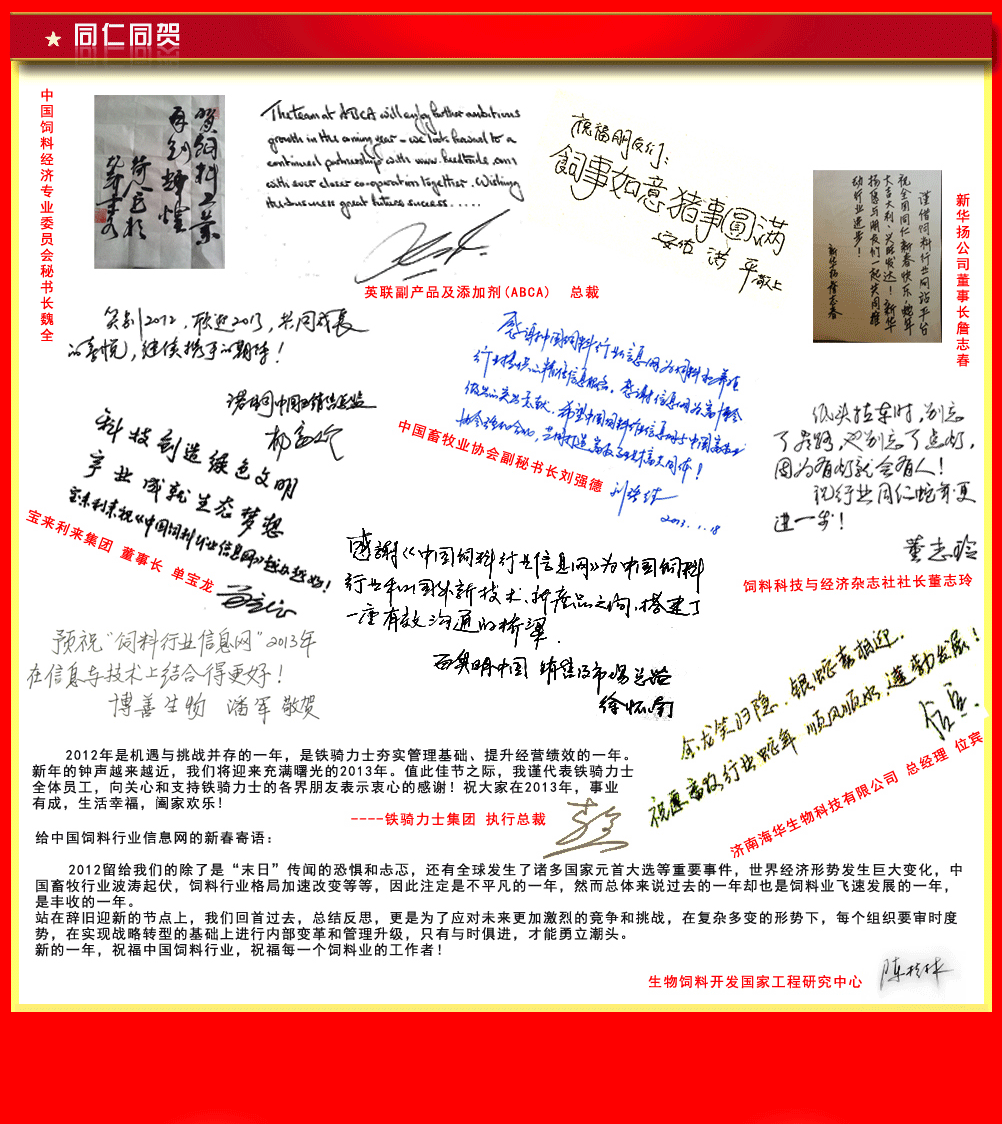 同仁同贺
中国饲料经济专业委员会秘书长魏全
贺饲料工业
再创辉煌
The team at ABCA will enjoy further ambitious
growth in the coming year - we look forward to a
continued partnership with www.feedtrade.com
with ever closer co-operation together. Wishing
the business great future success.....
英联副产品及添加剂(ABCA) 总裁
祝福朋友们：
飼事如意猪事圓满
安佑 洪平 敬上
谨借饲料行业网站平台
祝全国同仁新春快乐、蛇年
大吉大利、兴旺发达！新华
扬愿与朋友们一起共同推
动行业进步！
新华扬 詹志春
新华扬公司董事长詹志春
笑别2012，欢迎2013，共同成长
的喜悦，继续携手的期待！
感谢中国饲料行业信息网为饲料和养殖
行业提供的精准信息服务，感谢信息网为畜牧业协会
做出的突出贡献，希望中国饲料行业信息网与中国畜牧业
协会强化合作，共同打造畜牧行业共同体！
刘强德
2013.1.18
中国畜牧业协会副秘书长刘强德
科技创造绿色文明
产业成就生态梦想
宝来利来祝《中国饲料行业信息网》越办越好！
宝来利来集团 董事长 单宝龙
低头拉车时，别忘
了看路，也别忘了点灯，
因为有灯就会有人！
祝行业同仁蛇年更
进一步！
董志玲
饲料科技与经济杂志社社长董志玲
感谢《中国饲料行业信息网》为中国饲料
行业和国外新技术、新产品之间，搭建了
一座有效沟通的桥梁．
百奥明中国 销售及市场总监
徐怀南
预祝“饲料行业信息网”2013年
在信息与技术上结合得更好！
博善生物 潘军 敬贺
金龙笑归隐，银蛇喜相迎．
祝愿畜牧行业蛇年 顺风顺水，蓬勃发展！
位宾
济南海华生物科技有限公司 总经理 位宾
2012年是机遇与挑战并存的一年，是铁骑力士夯实管理基础、提升经营绩效的一年。
新年的钟声越来越近，我们将迎来充满曙光的2013年。值此佳节之际，我谨代表铁骑力士
全体员工，向关心和支持铁骑力士的各界朋友表示衷心的感谢！祝大家在2013年，事业
有成，生活幸福，阖家欢乐！
----铁骑力士集团 执行总裁
给中国饲料行业信息网的新春寄语：
2012留给我们的除了是“末日”传闻的恐惧和忐忑，还有全球发生了诸多国家元首大选等重要事件，世界经济形势发生巨大变化，中
国畜牧行业波涛起伏，饲料行业格局加速改变等等，因此注定是不平凡的一年，然而总体来说过去的一年却也是饲料业飞速发展的一年，
是丰收的一年。
站在辞旧迎新的节点上，我们回首过去，总结反思，更是为了应对未来更加激烈的竞争和挑战，在复杂多变的形势下，每个组织要审时度
势，在实现战略转型的基础上进行内部变革和管理升级，只有与时俱进，才能勇立潮头。
新的一年，祝福中国饲料行业，祝福每一个饲料业的工作者！
生物饲料开发国家工程研究中心